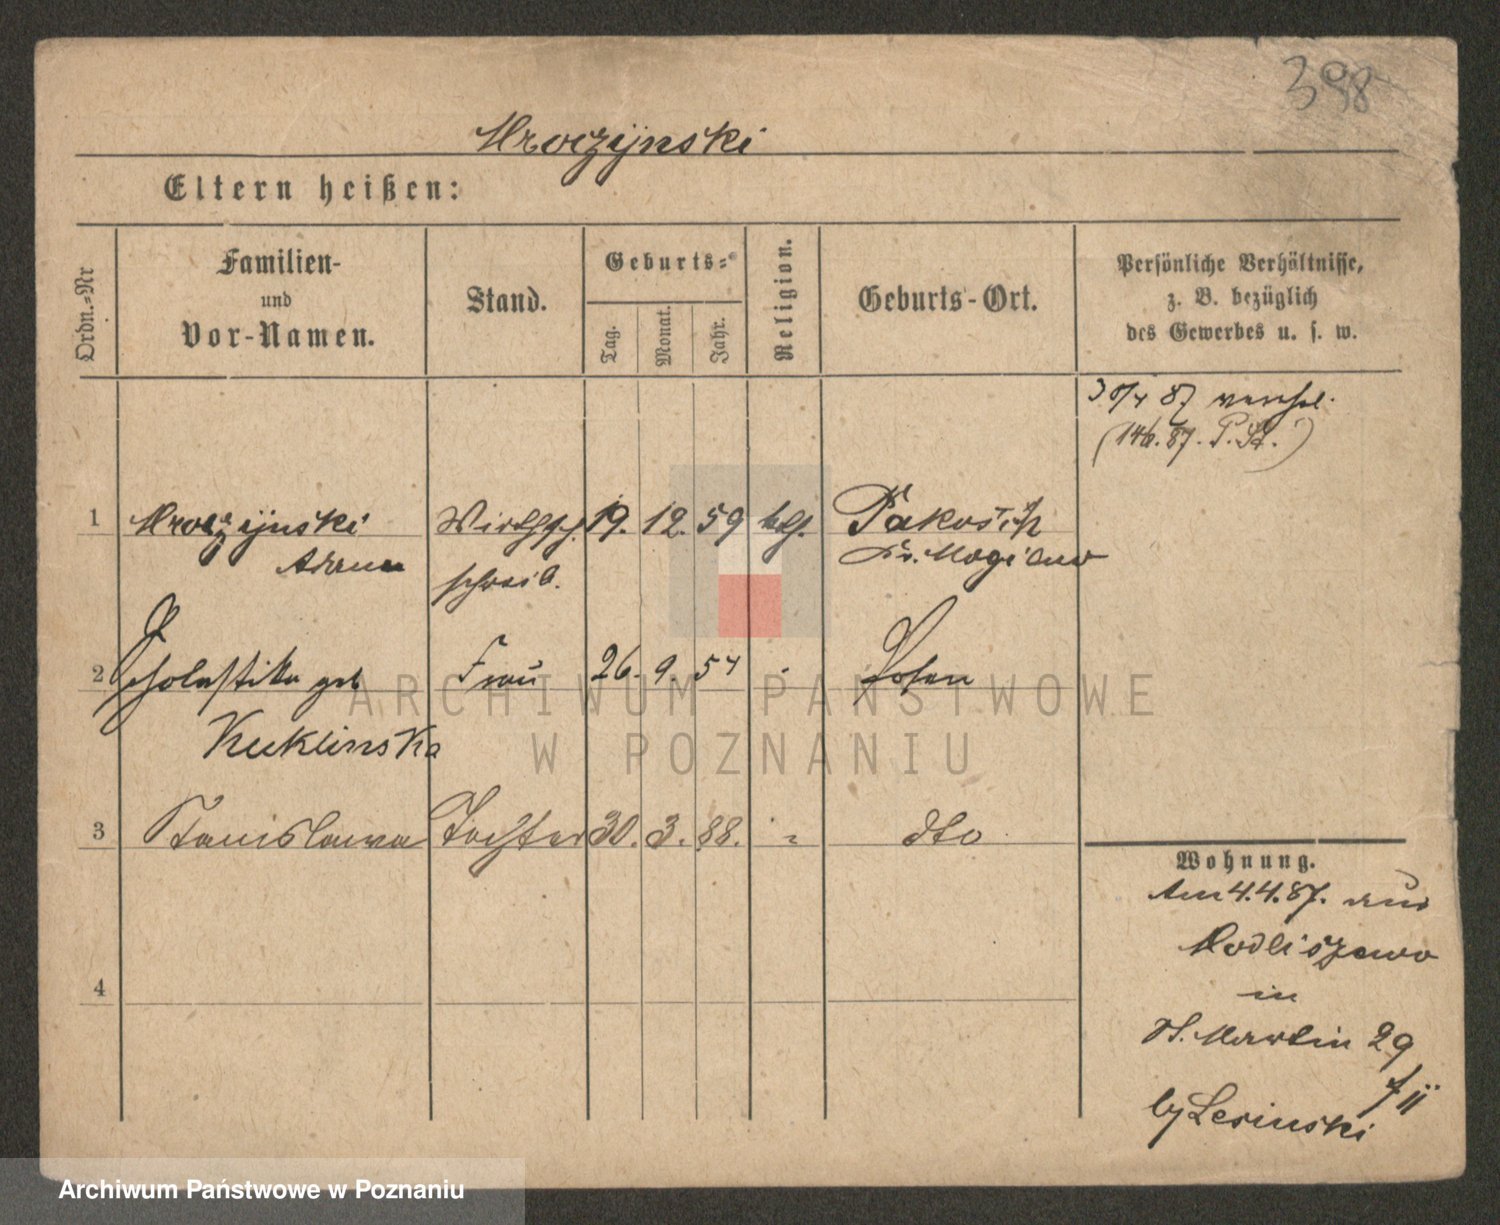 398
Mroczynski
Eltern heißen:
Ordn.-Nr
Familien-
und
Vor-Namen.
Stand.
Geburts-
Tag.
Monat.
Jahr.
Religion.
Geburts-Ort.
Persönliche Verhältnisse,
z. B. bezüglich
des Gewerbes u. s. w.
30/4 87
(146.87. P. St.)
1 Mroczynski Wirthsch. 19. 12. 59 kth. Pakosch
Adam schreib. Kr. Mogilno
2 Scholastika geb Frau 26. 9. 54 Posen
Kuklinska
3 Stanislawa Tochter 30. 3. 88. " dto
4
Wohnung.
Am 4.4.87. aus
Modliszewo
in
St. Martin 29
by Lesinski
ARCHIWUM PAŃSTWOWE
W POZNANIU
Archiwum Państwowe w Poznaniu